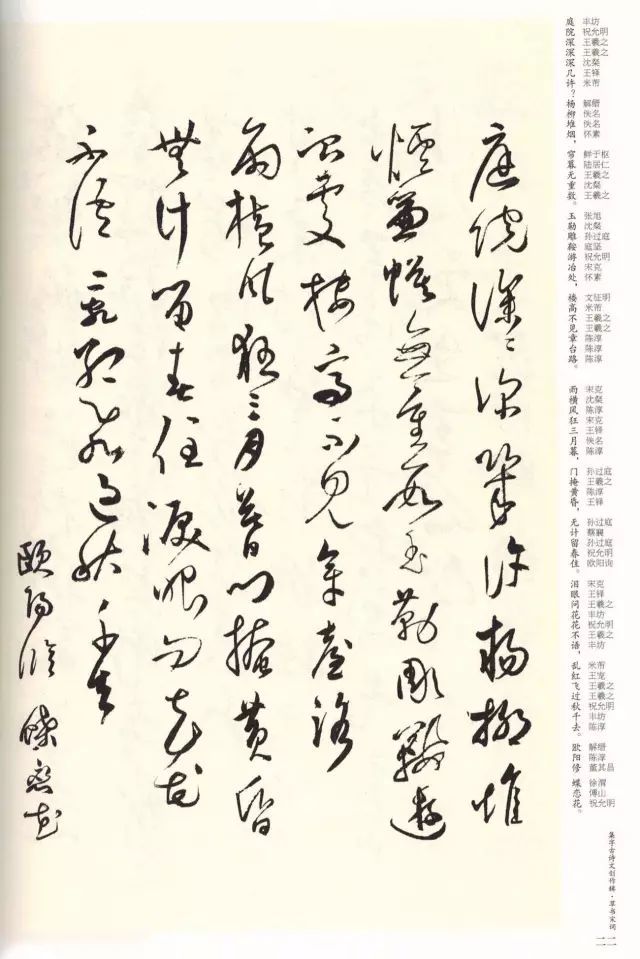 集字古诗文创作辑·草书宋词
二二
丰坊 祝允明 王羲之 王羲之 沈粲 王铎 米芾
解缙 佚名 佚名 怀素
鲜于枢 陆居仁 王羲之 沈粲 王羲之
张旭 沈粲 孙过庭 庭坚 祝允明 宋克 怀素
文征明 米芾 王羲之 王羲之 陈淳 陈淳 陈淳
宋克 沈粲 陈淳 宋克 王铎 佚名 陈淳
孙过庭 王羲之 陈淳 王铎
孙过庭 蔡襄 孙过庭 祝允明 欧阳询
宋克 王铎 王羲之 丰坊 祝允明 王羲之 丰坊
米芾 王宠 王羲之 王羲之 祝允明 丰坊 陈淳
解缙 陈淳 董其昌
徐渭 傅山 祝允明
庭院深深深几许?杨柳堆烟,帘幕无重数。玉勒雕鞍游冶处,楼高不见章台路。
雨横风狂三月暮,门掩黄昏,无计留春住。泪眼问花花不语,乱红飞过秋千去。
欧阳修 蝶恋花。
庭院深〻深幾許楊柳堆
煙簾幕無重數玉勒雕鞍遊
冶處樓高不見章臺路
雨橫風狂三月暮門掩黃昏
無計留春住淚眼問花花
不語亂紅飛過秋千去
歐陽修 蝶戀花